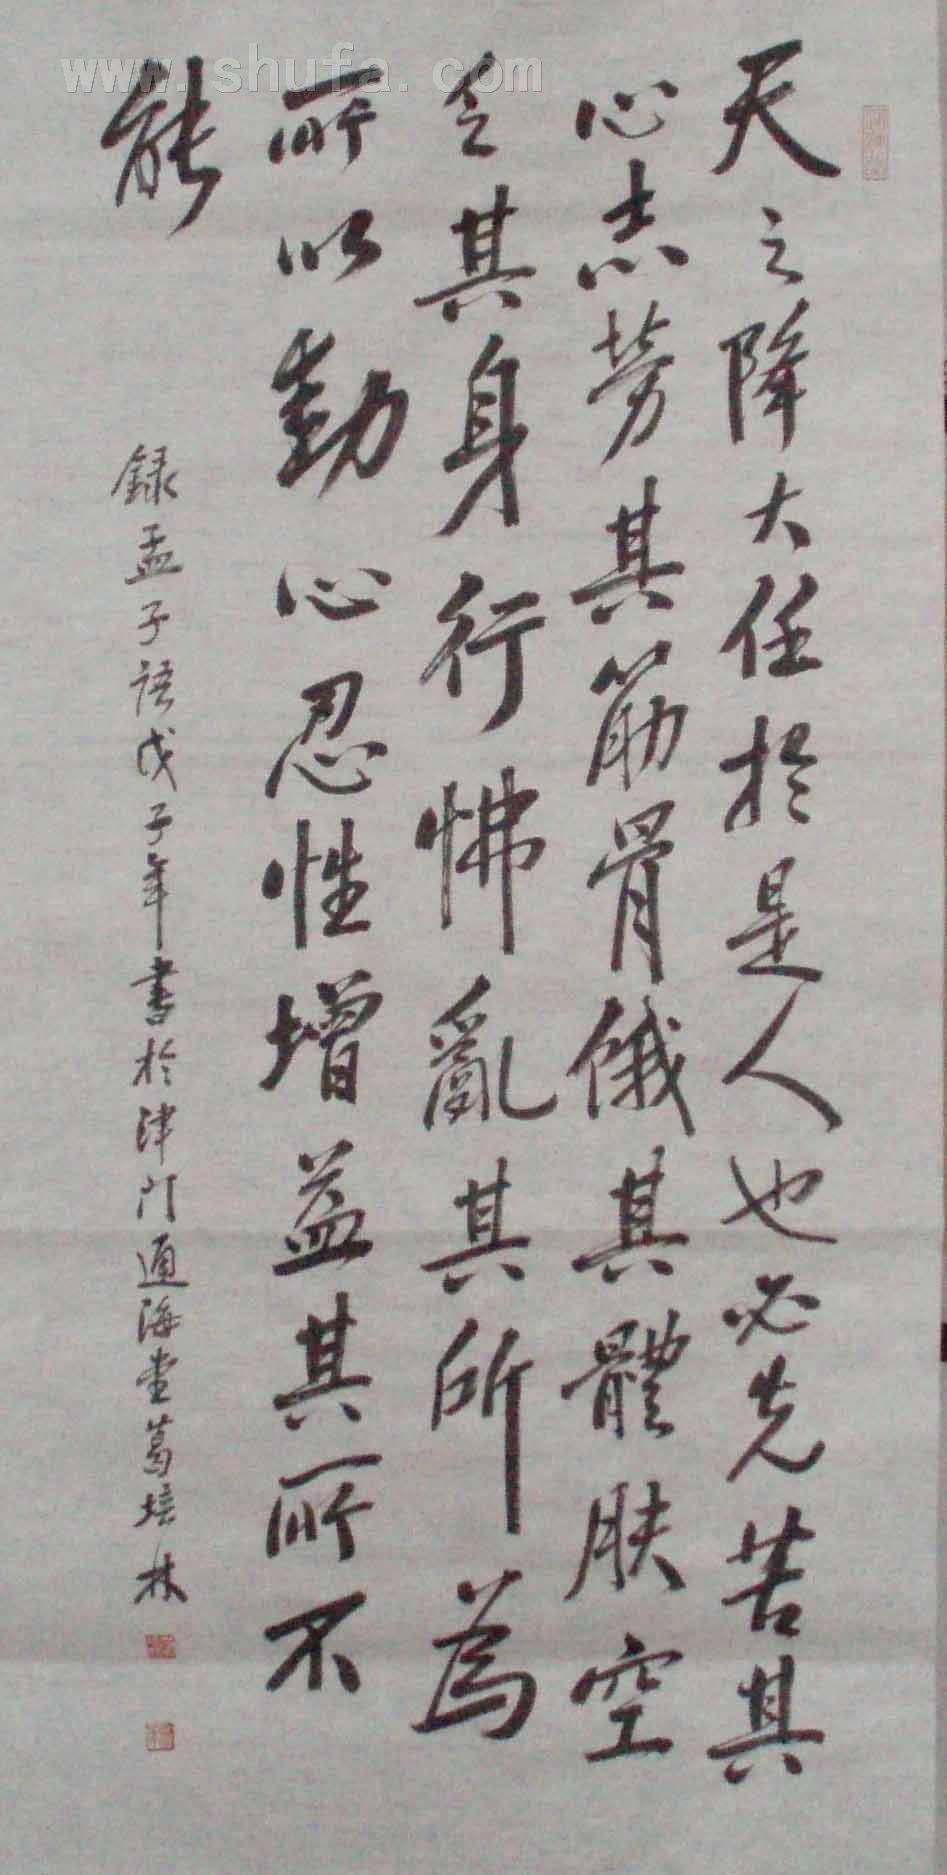 www.shufa.com
天之降大任於是人也必先苦其
心志劳其筋骨餓其體肤空
乏其身行怫亂其所為
所以動心忍性增益其所不
能
録孟子语戊子年書於津门通海堂葛培林